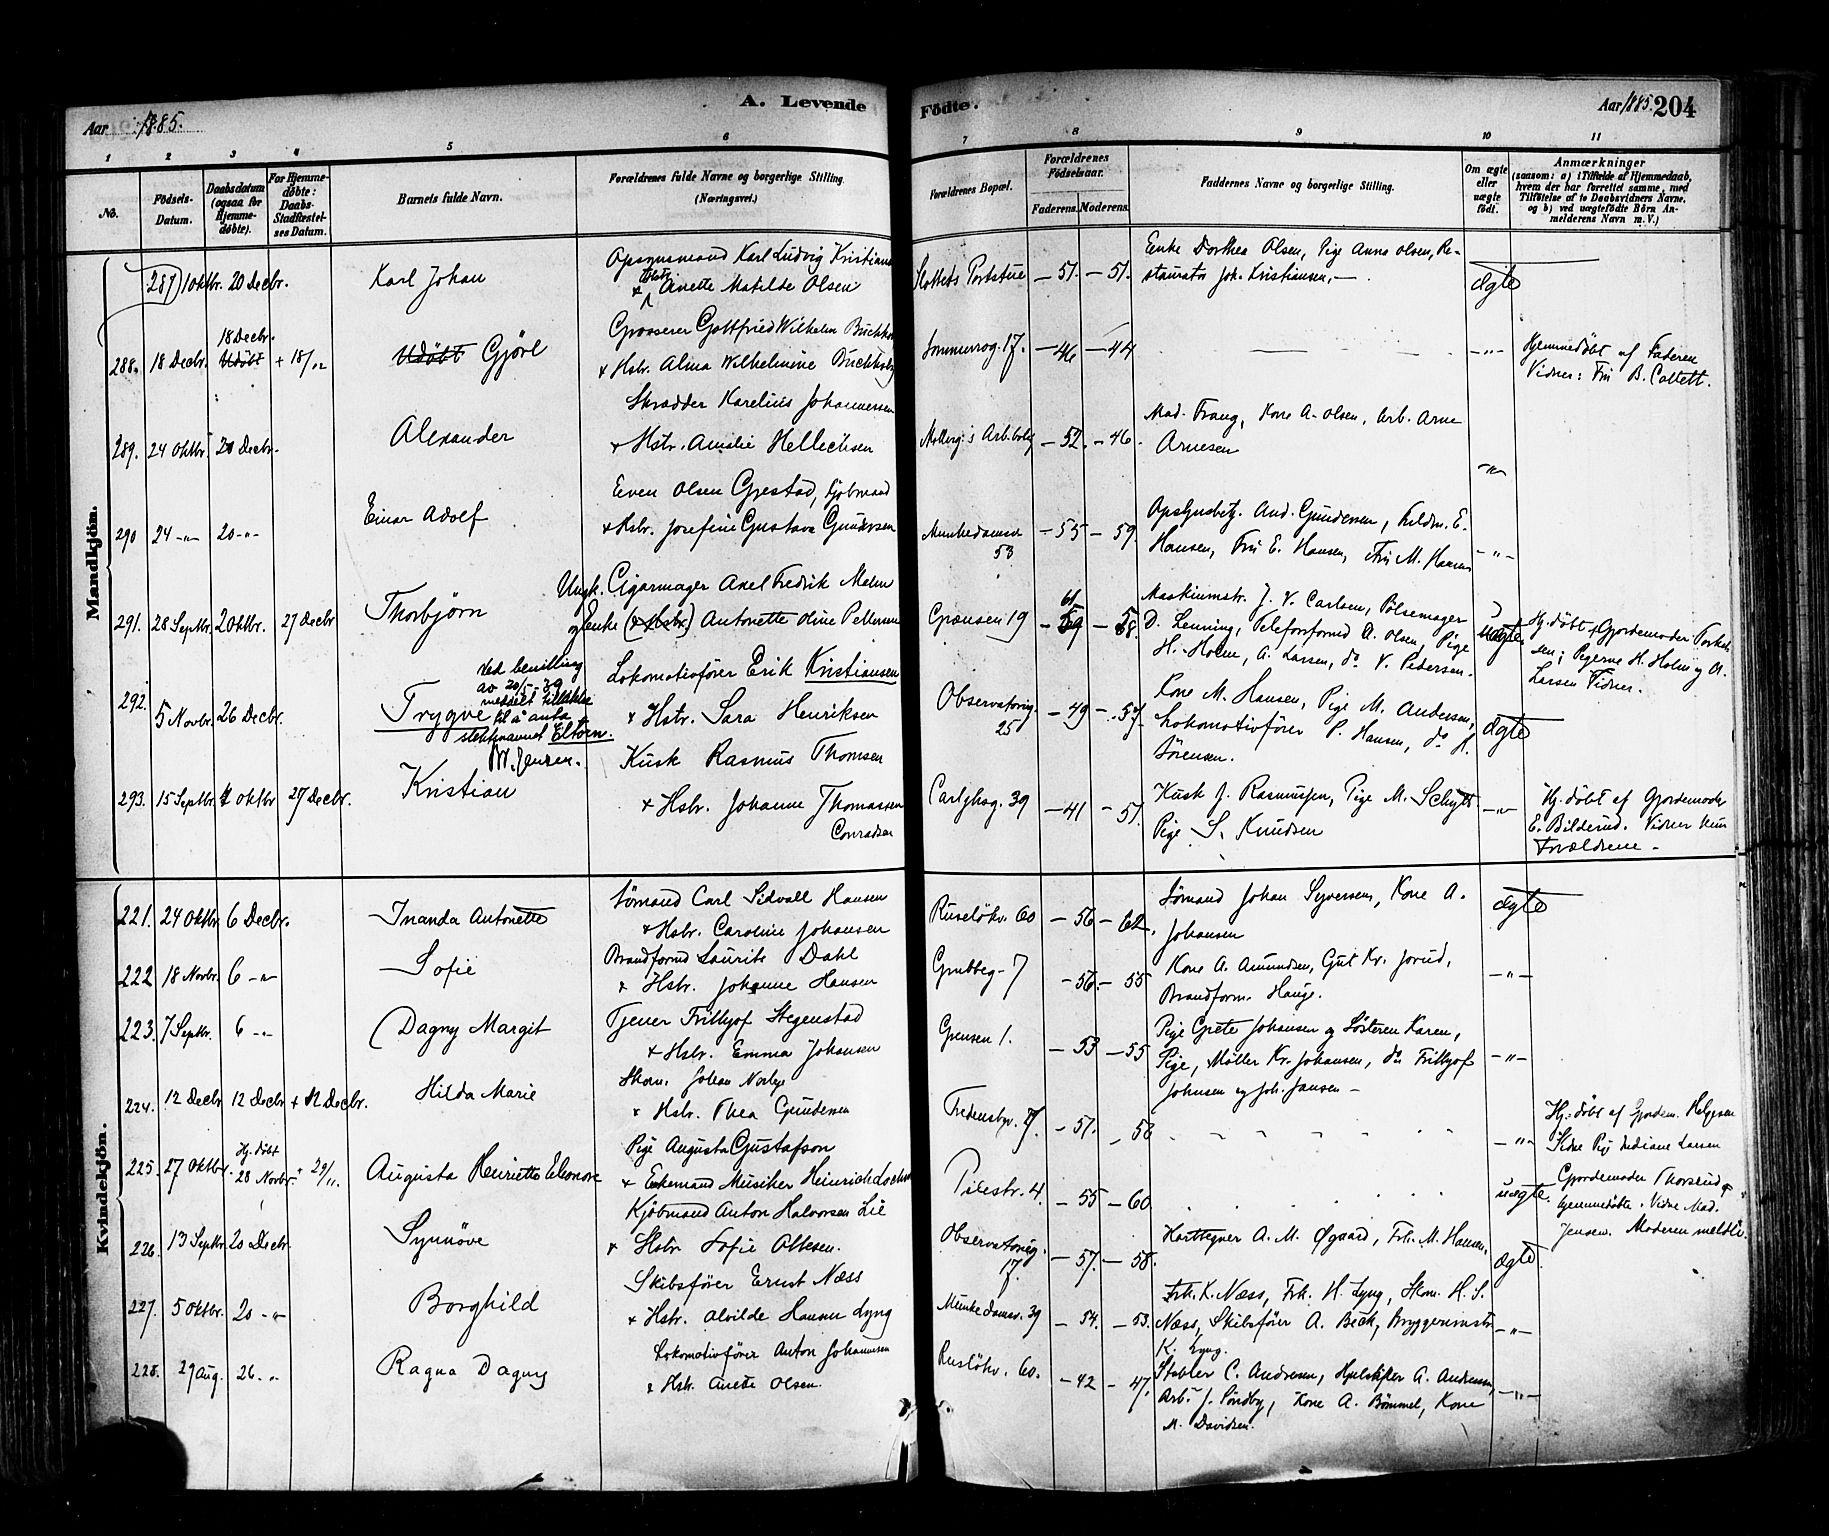 A. Levende
Fødte.
Aar 1885.
Aar 1885. 204
1 2 3 4 5 6 7 8 9 10 11
No.
Fødsels-Datum.
Daabsdatum (ogsaa for Hjemme-døbte).
For Hjemme-døbte: Daabs-Stadfæstel-ses Datum.
Barnets fulde Navn.
Forældrenes fulde Navne og borgerlige Stilling (Næringsvei.)
Forældrenes Bopæl.
Forældrenes Fødselsaar.
Faderens. Moderens.
Faddernes Navne og borgerlige Stilling.
Om ægte eller uægte født.
Anmærkninger
(saasom: a) i Tilfælde af Hjemmedaab, hvem der har forrettet samme, med Tilføielse af to Daabsvidners Navne, og b) ved uægtefødte Børn Anmelderens Navn m. V.)
Mandkjøn.
287 1 Oktbr. 20 Decbr. Karl Johan
Opsynsmand Karl Ludvig Kristians
+ Hstr. Anette Matilde Olsen
Slottets Portstue – 51. – 51.
Enke Dorthea Olsen, Pige Anna Olsen, Re-
stauratør Joh. Kristiansen, –
ægte
288. 18 Decbr. 18 Decbr. Udøbt + 18/12 Udøbt Gjørl
Grosserer Gottfried Wilhelm Buchholz
+ Hstr. Alma Wilhelmine Buchholz
17. – 46 – 44
– " –
Hjemmedøbt af Faderen
Vidner: Fru B. Collett.
289. 24 Oktbr. 20 Decbr. Alexander
Skrædder Karelius Johannessen
+ Hstr. Amalie Hellechsen
– 52. – 46.
Mad. Frang, Kone A. Olsen, Arb. Arne
Arnesen
– " –
290 24 – " – 20 – " – Einar Adolf
Even Olsen Grestad, Kjøbmand
+ Hstr. Josefine Gustava Gundersen
Munkedamsv. 53 – 55 – 59.
Opsynsbetj. And. Gundersen, Feldw. E.
Hansen, Fru E. Hansen, Fru M. Hansen
– " –
291. 28 Septbr. 2 Oktbr. 27 Decbr Thorbjørn
Ungk. Cigarmager Axel Fredrik Malm
og Enke (+ Hstr.) Antonette Oline Pettersen
Grænsen 19 – 61 59 – 58.
Maskinmstr. J. V. Carlsen, Pølsemager
D. Lenning, Telefonformd A. Olsen, Pige
H. Holm, A. Larsen, do V. Pedersen.
uægte
Hj. døbt af Gjordemoder Torkel-
sen; Pigerne H. Holm og A.
Larsen Vidner.
292. 5 Novbr. 26 Decbr. Trygve
Ved bevilling
av 20/– – 39
meddelt tillatelse
til å anta
slektsnavnet Eltorn.
M. Jensen.
Lokomotivfører Erik Kristiansen
+ Hstr. Sara Henriksen
Observatorieg. 25 – 49 – 57.
Kone M. Hansen, Pige M. Andersen,
Lokomotivfører P. Hansen, do H.
Sørensen.
ægte
293. 15 Septbr. 4 Oktbr 27 Decbr. Kristian
Kusk Rasmus Thomsen
+ Hstr. Johanne Thomassen
Conradsen
39 – 41 – 51.
Kusk J. Rasmussen, Pige M. Schytt
Pige S. Knudsen
– " –
Hj. døbt af Gjordemoder
E. Bilderud. Vidner kun
Forældrene –
Kvindekjøn.
221. 24 Oktbr. 6 Decbr. Inanda Antonette
Sømand Carl Sidvall Hansen
+ Hstr. Caroline Johansen
Ruseløkv. 60 – 56 – 62.
Sømand Johan Syversen, Kone A.
Johansen
ægte
222 18 Novbr. 6 – " – Sofie
Brandformd Laurits Dahl
+ Hstr. Johanne Hansen
Grubbeg. 7 – 56. – 55
Kone A. Amundsen, Gut Kr. Jorud,
Brandform. Hauge.
– " –
223. 7 Septbr. 6 – " – Dagny Margit
Tjener Frithjof Stegenstad
+ Hstr. Emma Johansen
Grensen 1. – 53 – 55
Pige Grete Johansen og Søsteren Karen,
Pige, Møller Kr. Johansen, do Frithjof
Johnsen og Joh. Jansen –
– " –
224. 12 Decbr 12 Decbr + 12 Decbr. Hilda Marie
Skom. Johan Norbye
+ Hstr. Thea Gundersen
Fredensbgv. 7. – 57. – 56
– " –
Hj. døbt af Gjordem. Helgesen
Vidne Pige Indiane Larsen
225. 27 Oktbr. Hj. døbt 28 Novbr. + 29/11. Augusta Henriette Eleonore
Pige Augusta Gustafson
+ Enkemand Musiker Heinrich
Pilestr. 4. – 55 – 60
uægte.
Gjordemoder Thorsrud
hjemmedøbte. Vidne Mad.
Jensen. Moderen meldte.
226. 13 Septbr. 20 Decbr. Synnøve
Kjøbmand Anton Halvorsen Lie
+ Hstr. Sofie Ottesen.
Observatorieg. 17. – 57. – 58.
Karttegner A. M. Øgaard, Frk. M. Hansen.
ægte
227. 5 Oktbr. 20 – " – Borghild
Skibsfører Ernst Næss
+ Hstr. Alvilde Hanna Lyng
Munkedamsv. 39 – 54. – 53.
Frk. K. Næss, Frk. H. Lyng, Skom. H. S.
Næss, Skibsfører A. Beck, Bryggerimstr.
K. Lyng.
– " –
228. 29 Aug. 26. – " Ragna Dagny
Lokomotivfører Anton Johannesen
+ Hstr. Anette Olsen.
Ruseløkv. 60. – 42 – 47.
Stabler C. Andresen, Hjelskifter A. Andresen,
Arb. J. Sundby, Kone A. Bømmel, Kone
M. Davidsen.
– " –